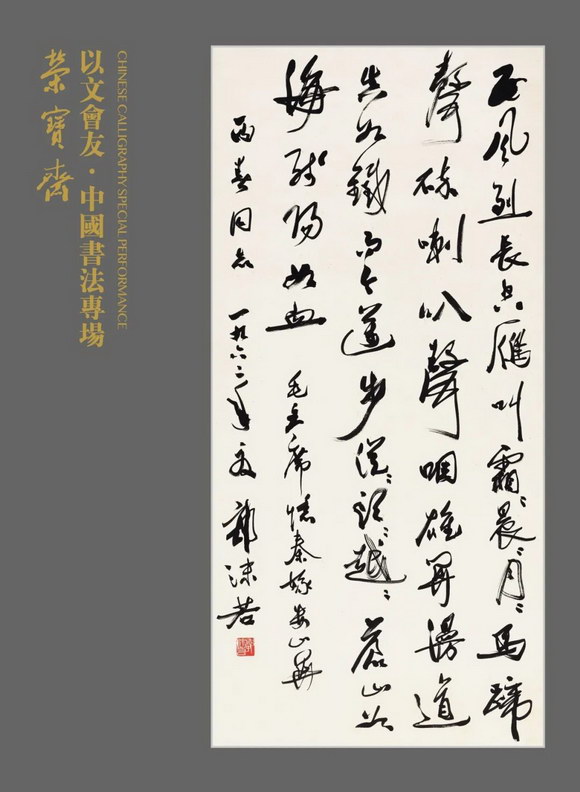 西風烈長空雁叫霜〻晨〻月〻馬蹄
聲碎喇叭聲咽雄關漫道
真如鐵而今邁步從〻頭〻越〻蒼山如
海殘陽如血
毛主席憶秦娥婁山關
春同志 一九六二年夏 郭沫若
CHINESE CALLIGRAPHY SPECIAL PERFORMANCE
以文會友·中國書法專場
榮寶齋